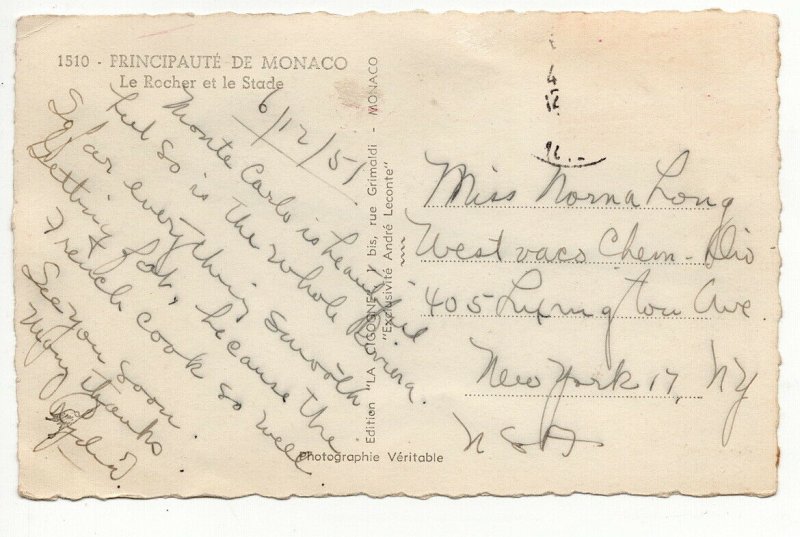 1510 - PRINCIPAUTÉ DE MONACO
Le Rocher et le Stade
6/12/51
Monte Carlo is beautiful
but so is the whole Riviera.
So far everything smooth.
Getting fat, because the
French cook so well
See you soon
Many thanks
Edition "LA CIGOGNE", 7 bis, rue Grimaldi - MONACO
"Exclusivité André Leconte"
Photographie Véritable
Miss Norma Long
Westvaco Chem - Div
405 Lexington Ave
New York 17, NY
USA